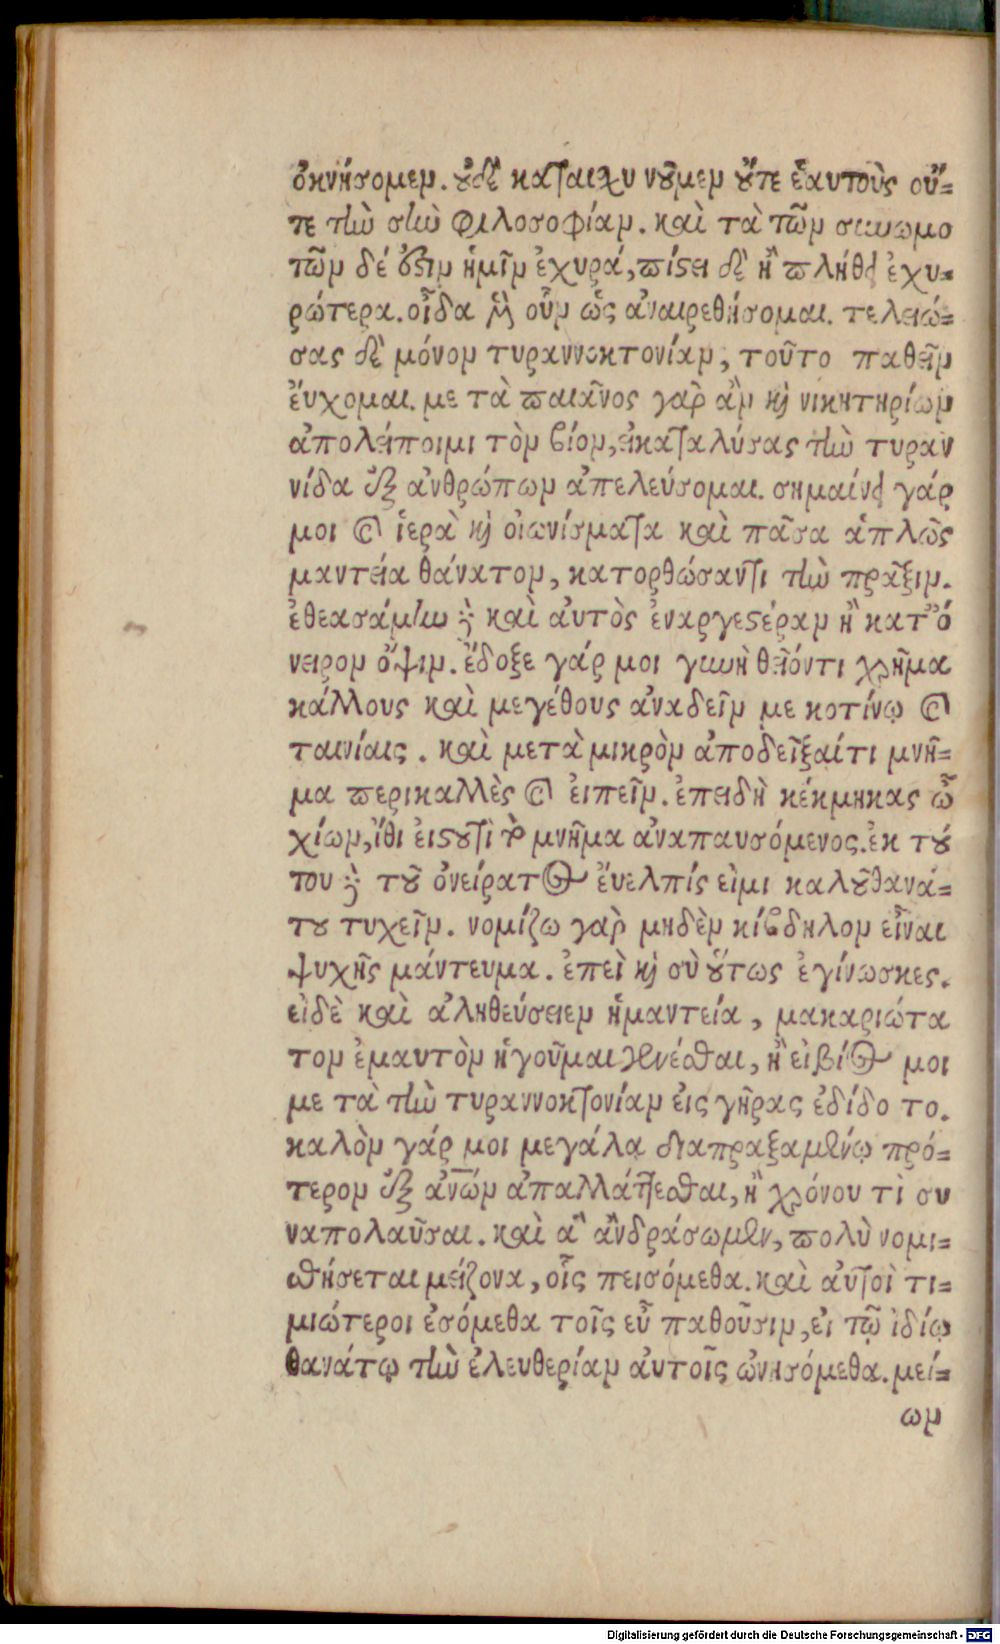 ὀκνήσομεν. ȣ̓δὲ καταιχυ νȣ͂μεν ȣ̓́τε ἑαυτοὺς οὔ-
τε τὴν σὴν φιλοσοφίαν. καὶ τὰ τῶν συνωμο
τῶν δέ ὅϛιν ἡμῖν ἐχυρά, πίϛει δὲ ἢ πλήθει ἐχυ-
ρώτερα. οἶδα μὲν οὖν ὡς ἀναιρεθήσομαι. τελειώ-
σας δὲ μόνον τυραννοκτονίαν, τοῦτο παθεῖν
ἔυχομαι. με τὰ παιᾶνος γαρ ἂν καὶ νικητηρίων
ἀπολείποιμι τὸν βίον, εἰκαταλύσας τὴν τυραν
νίδα ἐξ ἀνθρώπων ἀπελεύσομαι. σημαίνει γάρ
μοι καὶ ἱερὰ καὶ οἰωνίσματα καὶ πᾶσα ἁπλῶς
μαντεία θάνατον, κατορθώσαντι τὴν πρᾶξιν.
ἐθεασάμην δὲ καὶ ἀυτὸς ἐναργεϛέραν ἢ κατ’ ὄ
νειρον ὄψιν. ἔδοξε γάρ μοι γυνὴ θεῖόντι χρῆμα
κάλλους καὶ μεγέθους ἀναδεῖν με κοτίνῳ καὶ
ταινίαις. καὶ μετὰ μικρὸν ἀποδεῖξαίτι μνῆ-
μα περικαλλὲς καὶ ἐιπεῖν. ἐπειδὴ κέκμηκας ὦ
χίων, ἴθι ἐιϛȣτὶ τὸ μνῆμα ἀναπαυσόμενος. ἐκ τȣ́
του δὲ τȣ͂ ὀνείρατος ἔυελπίς εἰμι καλȣ͂θανά-
τȣ τυχεῖν. νομίζω γαρ μηδὲν κίβδηλον εἶναι
ψυχῆς μάντευμα. ἐπεὶ καὶ σὺ ȣ̔́τως ἐγίνωσκες.
εἰδὲ καὶ ἀληθεύσειεν ἡμαντεία, μακαριώτα
τον ἐμαυτὸν ἡγοῦμαι γενέσθαι, ἢ εἰ βίος μοι
με τὰ τὴν τυραννοκτονίαν ἐις γῆρας ἐδίδο το.
καλὸν γάρ μοι μεγάλα διαπραξαμένῳ πρό-
τερον ἐξ ἀν͞ων ἀπαλλάττεσθαι, ἢ χρόνου τὶ συ
ναπολαῦσαι. καὶ ἃ ἂνδράσωμεν, πολὺ νομι-
σθήσεται μείζονα, οἷς πεισόμεθα. καὶ ἀυτοὶ τι-
μιώτεροι ἐσόμεθα τοῖς εὖ παθοῦσιν, ἐι τῷ ἰδίῳ
θανάτῳ τὴν ἐλευθερίαν ἀυτοῖς ὠνησόμεθα. μεί-
ων
Digitalisierung gefördert durch die Deutsche Forschungsgemeinschaft - DFG